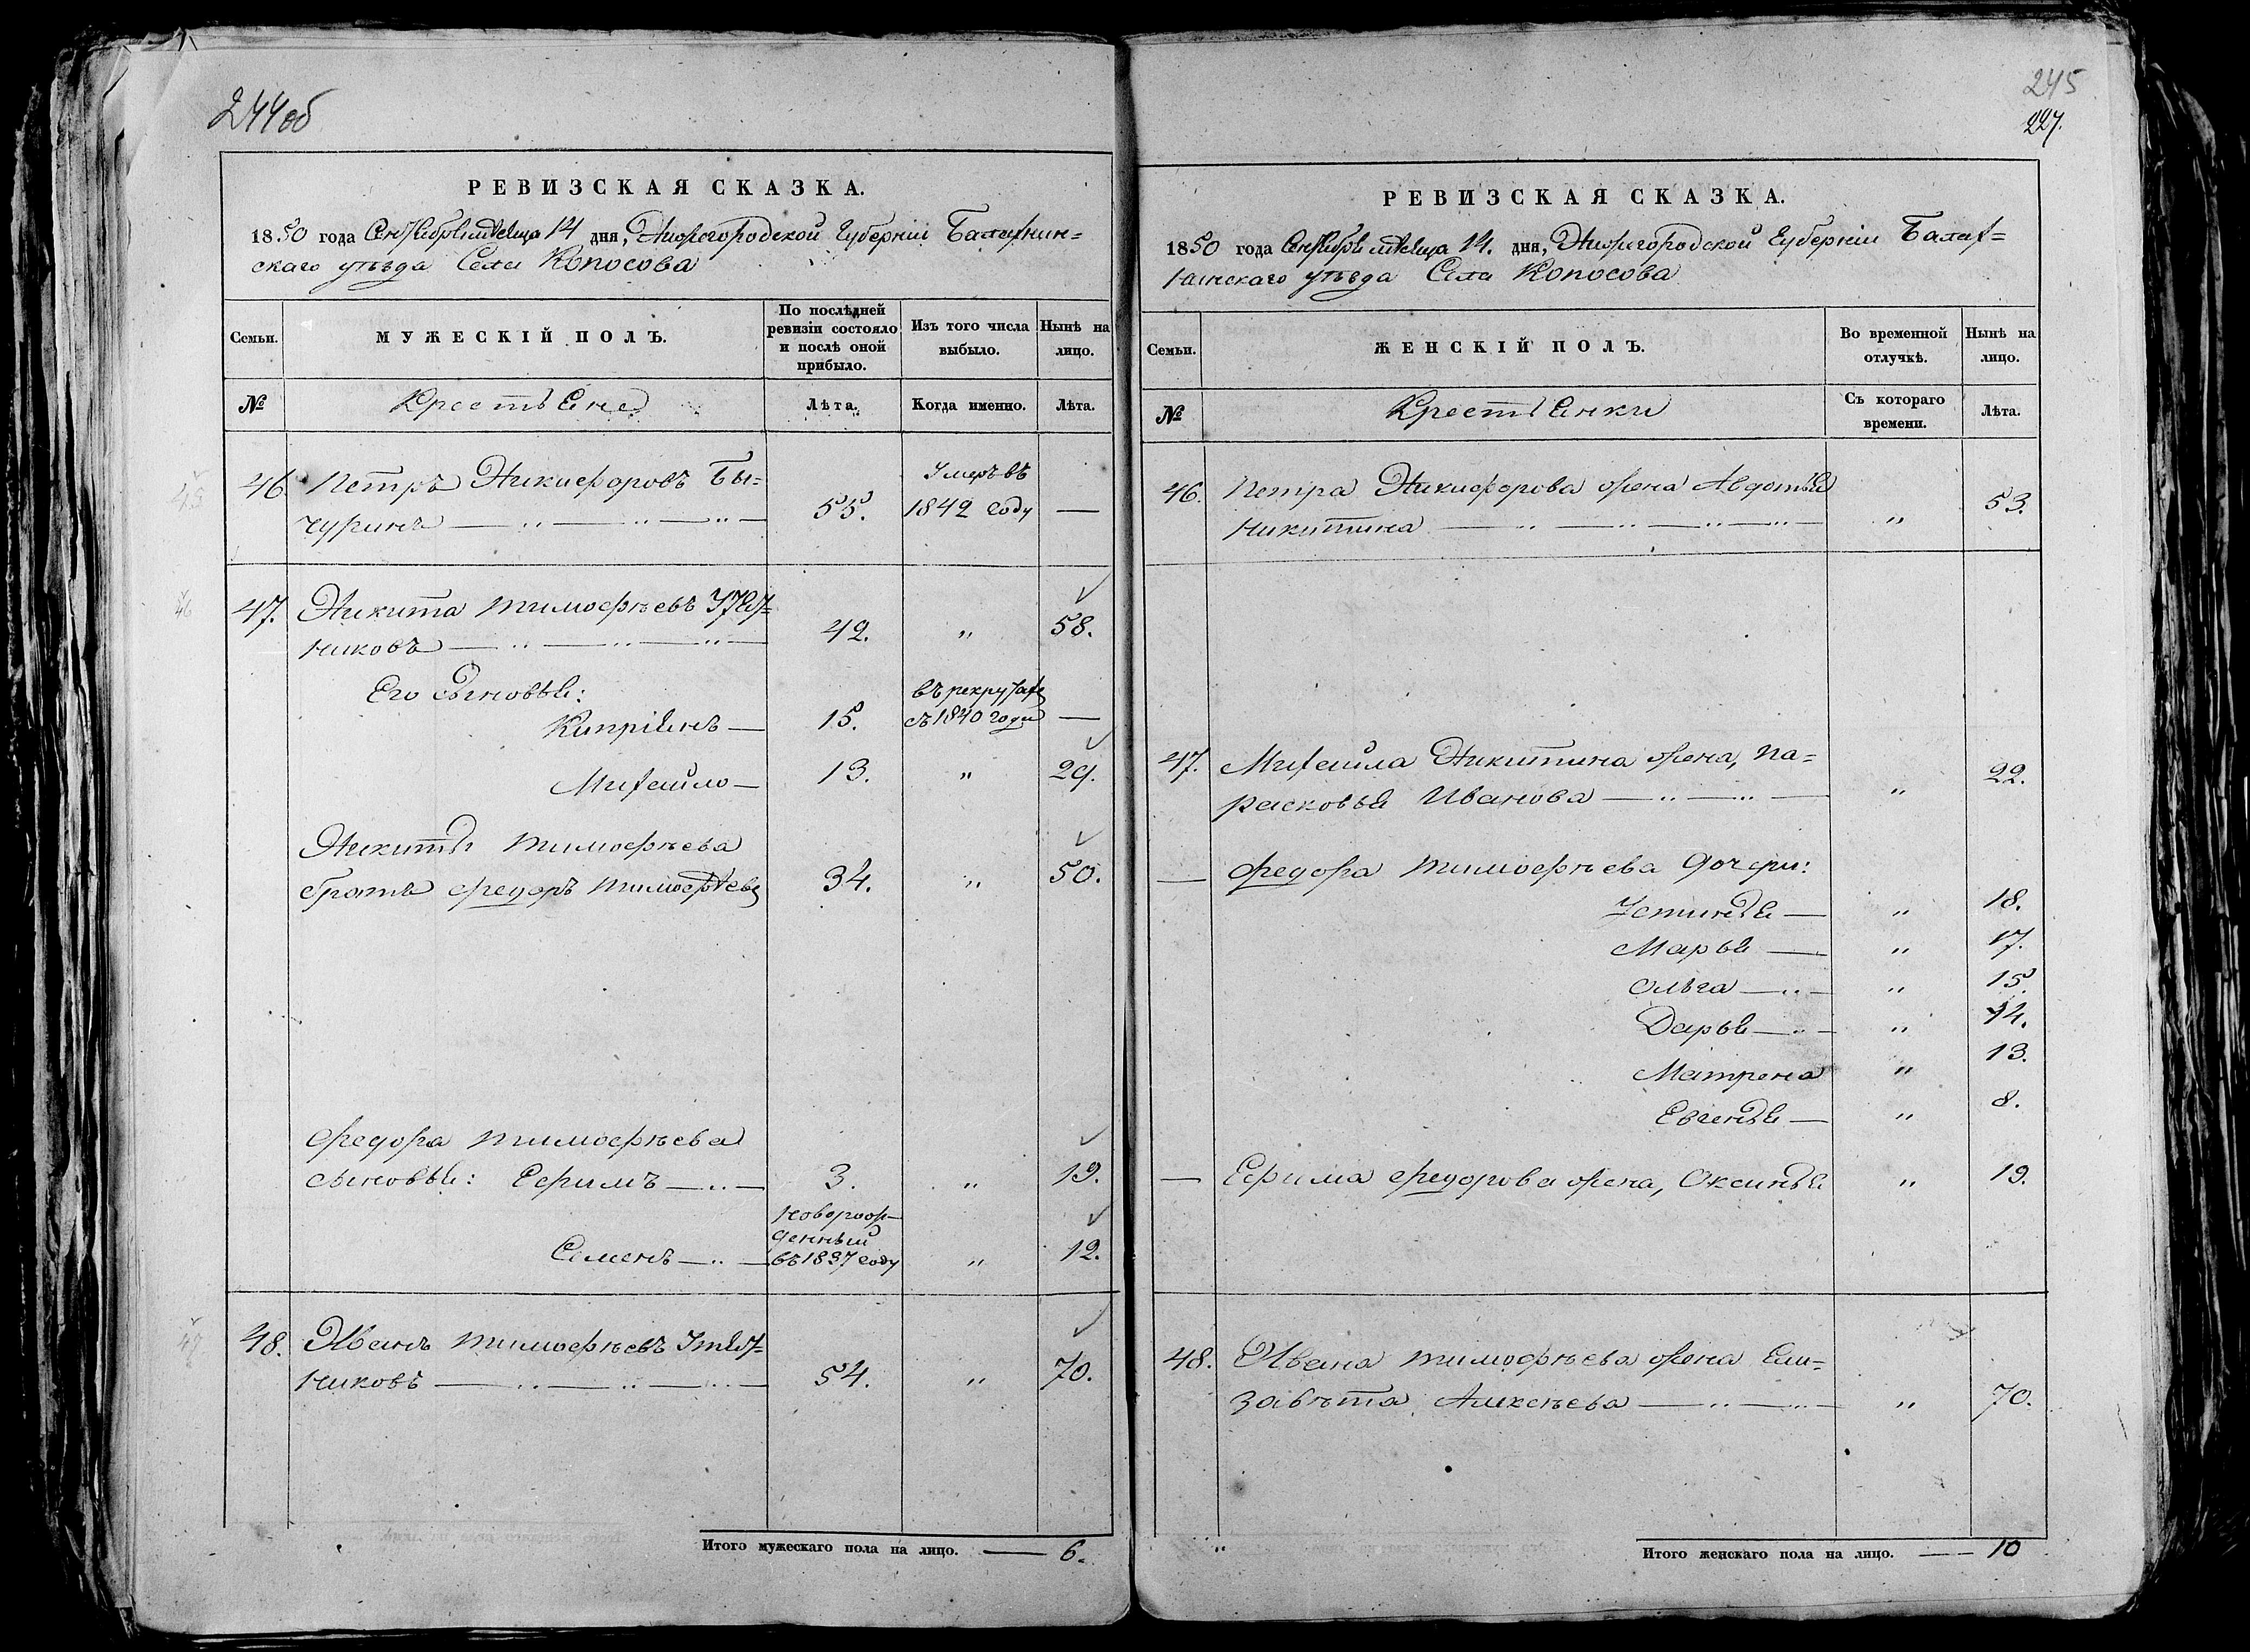 244об
РЕВИЗСКАЯ СКАЗКА.
1850 года Сентября месяца 14 дня, Нижегородской Губерніи Балахнин=
скаго уѣзда Села Копосова
Семьи.
МУЖЕСКІЙ ПОЛЪ.
По послѣдней ревизіи состояло и послѣ оной прибыло.
Изъ того числа выбыло.
Нынѣ на лицо.
№
Крестьяне
Лѣта.
Когда именно.
Лѣта.
46. Петръ Никифоровъ Бы=
чуринъ 55. Умеръ въ 1842 году —
47. Никита Тимофѣевъ
никовъ 42. „ 58.
Его сыновья:
Кипріянъ — 15. въ рекрутахъ съ 1840 года —
Михайло — 13. „ 29.
Никиты Тимофѣева
братъ Федоръ Тимофѣевъ 34. „ 50.
Федора Тимофѣева
сыновья: Ефимъ — 3. „ 19.
Семенъ — новорож-
денный
въ 1837 году „ 12.
48. Иванъ Тимофѣевъ
никовъ 54. „ 70.
Итого мужескаго пола на лицо. — 6.
245
227.
РЕВИЗСКАЯ СКАЗКА.
1850 года Сентября месяца 14. дня, Нижегородской Губерніи Балах=
нинскаго уѣзда Села Копосова
Семьи.
ЖЕНСКІЙ ПОЛЪ.
Во временной отлучкѣ.
Нынѣ на лицо.
№
Крестьянки
Съ котораго времени.
Лѣта.
46. Петра Никифорова жена Авдотья
Никитина „ 53.
47. Михайла Никитина жена, Па=
расковья Иванова „ 22.
— Федора Тимофѣева дочери:
Устинья — „ 18.
Марья — „ 17.
Ольга — „ 15.
Дарья — „ 14.
Матрена „ 13.
Евгенья — „ 8.
— Ефима Федорова жена, Оксинья „ 19.
48. Ивана Тимофѣева жена Ели=
завѣта Алексѣева „ 70.
Итого женскаго пола на лицо. — 10